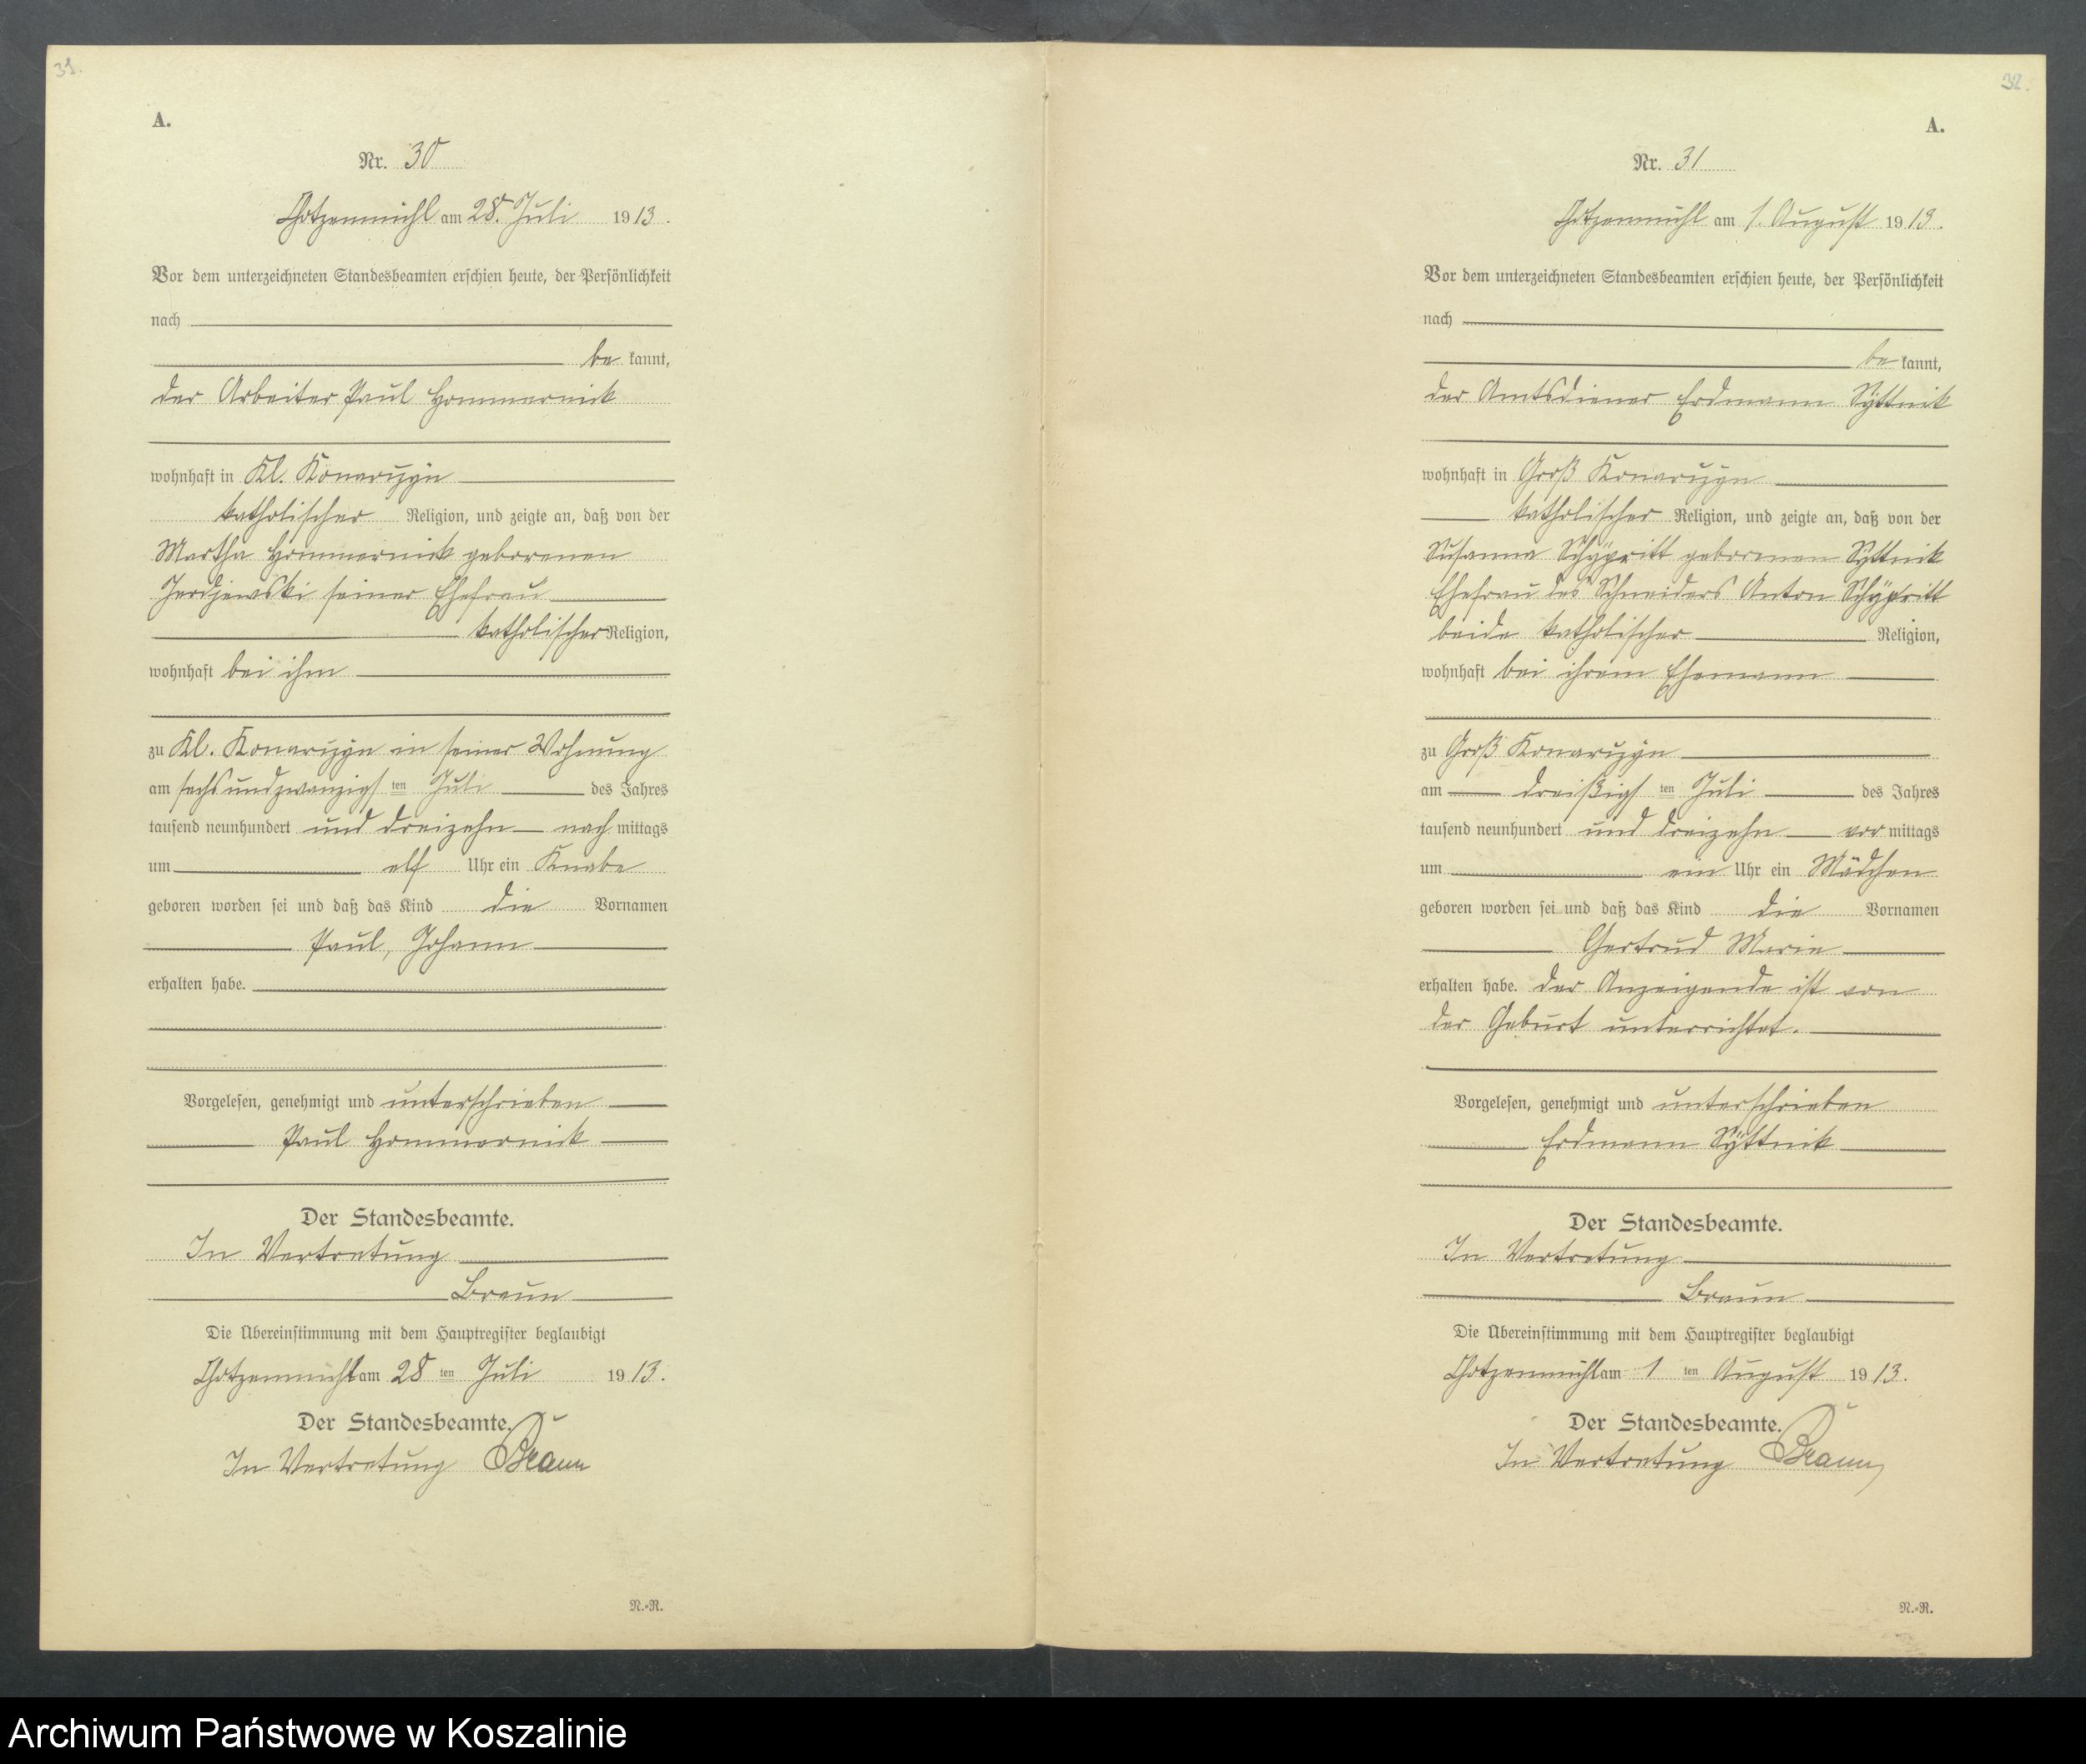 31.
A.
Nr. 30
Chotzenmühl am 28. Juli 1913.
Vor dem unterzeichneten Standesbeamten erschien heute, der Persönlichkeit
nach
be kannt,
der Arbeiter Paul Hommernick
wohnhaft in Kl. Konarzyn
katholischer Religion, und zeigte an, daß von der
Martha Hommernick geborenen
seiner Ehefrau
katholischer Religion,
wohnhaft bei ihm
zu Kl. Konarzyn in seiner Wohnung
am sechsundzwanzigs ten Juli des Jahres
tausend neunhundert und dreizehn nach mittags
um elf Uhr ein Knabe
geboren worden sei und daß das Kind die Vornamen
Paul, Johann
erhalten habe.
Vorgelesen, genehmigt und unterschrieben
Paul Hommernick
Der Standesbeamte.
In Vertretung
Braun
Die Übereinstimmung mit dem Hauptregister beglaubigt
Chotzenmühl am 28 ten Juli 1913.
Der Standesbeamte.
In Vertretung Braun
N.-R.
32.
A.
Nr. 31
Chotzenmühl am 1. August 1913.
Vor dem unterzeichneten Standesbeamten erschien heute, der Persönlichkeit
nach
be kannt,
der Amtsdiener Erdmann Syttnik
wohnhaft in Groß Konarzyn
katholischer Religion, und zeigte an, daß von der
Susanna geborenen Syttnik
Ehefrau des Schneiders Anton
beide katholischer Religion,
wohnhaft bei ihrem Ehemann
zu Groß Konarzyn
am dreißigs ten Juli des Jahres
tausend neunhundert und dreizehn vor mittags
um ein Uhr ein Mädchen
geboren worden sei und daß das Kind die Vornamen
Gertrud Marie
erhalten habe. der Anzeigende ist von
der Geburt unterrichtet.
Vorgelesen, genehmigt und unterschrieben
Erdmann Syttnik
Der Standesbeamte.
In Vertretung
Braun
Die Übereinstimmung mit dem Hauptregister beglaubigt
Chotzenmühl am 1 ten August 1913.
Der Standesbeamte.
In Vertretung Braun
N.-R.
Archiwum Państwowe w Koszalinie